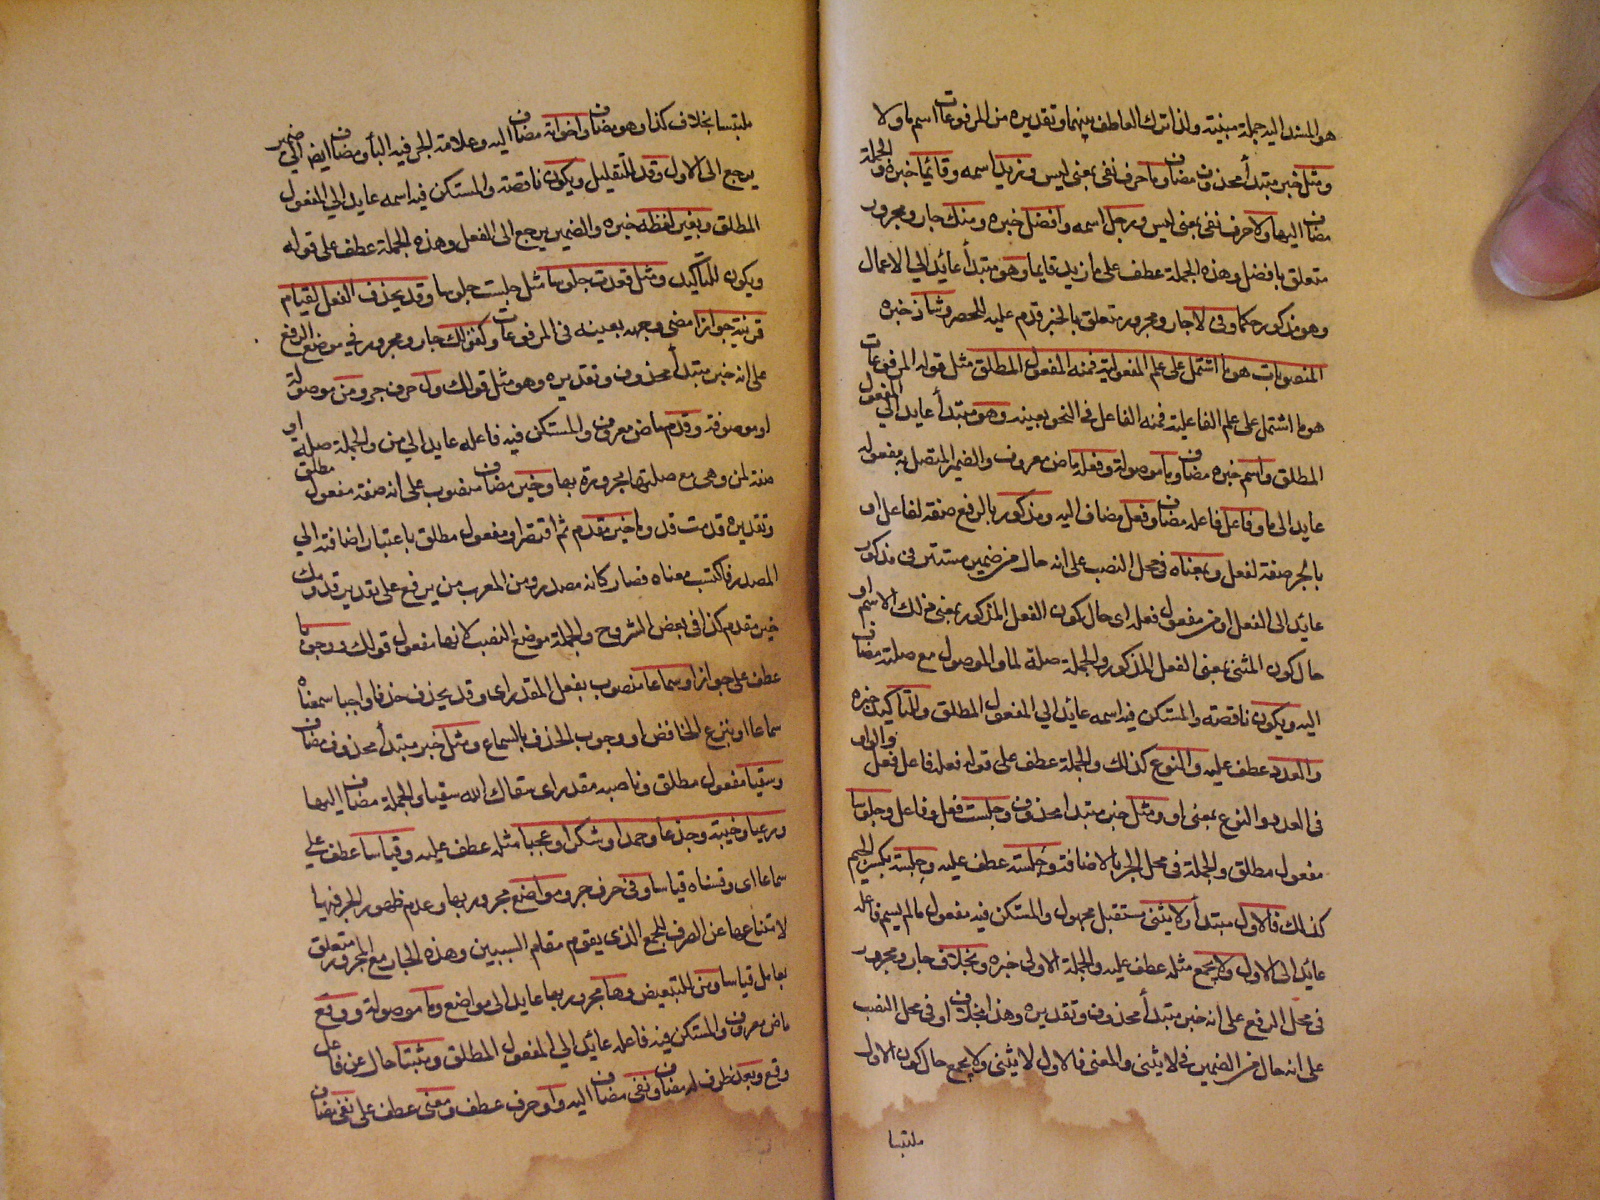 هو المسند اليه جملة مبينة ولذا ترك العاطف بينهما وتقديره من المرفوعات اسم ما ولا
ومثل خبر مبتدأ محذوف مضاف وما حرف نفى بمعنى ليس وزيد اسمه وقائما خبره والجملة
مضاف اليها ولا حرف نفى بمعنى ليس ورجل اسمه وافضل خبره ومنك جار ومجرور
متعلق بافضل وهذه الجملة عطف على ما زيد قايما وهو مبتدأ عائد الي الاعمال
وهو مذكور حكما وفى لا جار ومجرور متعلق بالخبر قدم عليه للحصر وشاذ خبره
المنصوبات هو ما اشتمل على علم المفعولية فمنه المفعول المطلق مثل قوله المرفوعات
هو ما اشتمل على علم الفاعلية فمنه الفاعل فى النحو بعينه وهو مبتدأ عايد الي المفعول
المطلق واسم خبره مضاف وما موصولة وفعله ماض معروف والضمير المتصل به مفعوله
عايد الى ما وفاعل فاعله مضاف وفعل مضاف اليه ومذكور بالرفع صفة لفاعل او
بالجر صفة لفعل وبمعناه فى محل النصب على انه حال من ضمير مستتر فى مذكور
عائد الى الفعل او من مفعول فعله اى حال كون الفعل المذكور بمعنى ذلك الاسم او
حال كون المثنى بمعنى الفعل المذكور والجملة صلة لما والموصول مع صلته مضاف
اليه ويكون ناقصة والمستكن فيه اسمه عائد الي المفعول المطلق وللتاكيد خبره
والعدد عطف عليه والنوع كذلك والجملة عطف على قوله فعله فاعل فعل والواو
فى العدد والنوع بمعنى او ومثل خبر مبتدا محذوف وجلست فعل وفاعل وجلوسا
مفعول مطلق والجملة فى محل الجر بالاضافة وجلسة عطف عليه وجلسة بكسر الجيم
كذلك فالاول مبتدأ ولا يثنى مستقبل مجهول والمستكن فيه مفعول مالم يسم فاعله
عائد الى الاول ولا يجمع مثله عطف عليه والجملة الاولى خبره وبخلاف جار ومجرور
فى محل الرفع على انه خبر مبتدأ محذوف وتقديره وهذا بخلاف او فى محل النصب
على انه حال من الضمير فى لا يثنى والمعنى فالاول لا يثنى ولا يجمع حال كون الاول
ملتبسا
ملتبسا بخلاف كذا وهو مضاف واخواته مضاف اليه وعلامة الجر فيه الياء ومضاف ايضا الي ضمير
يرجع الى الاول وقد للتقليل ويكون ناقصة والمستكن فيه اسمه عايد الي المفعول
المطلق وبغير لفظه خبره والضمير يرجع الى الفعل وهذه الجملة عطف على قوله
ويكون للتاكيد ومثل قعدت جلوسا مثل جلست جلوسا وقد يحذف الفعل لقيام
قرينة جوازا مضى وجهه بعينه فى المرفوعات وكقولك جار ومجرور في موضع الرفع
على انه خبر مبتدأ محذوف وتقديره وهو مثل قولك ول حرف جر ومن موصولة
او موصوفة وقدم ماض معروف والمستكن فيه فاعله عايد الي من والجملة صلة او
صفة لمن وهى مع صلتها مجرورة بها وخير مضاف منصوب على انه صفة مفعول مطلق
وتقديره قدمت قدوما خير مقدم ثم اقتصر او مفعول مطلق باعتبار اضافته الي
المصدر فاكتسب معناه فصار كانه مصدر ومن المعرب من يرفع على تقدير قدومك
خير مقدم كذا فى بعض الشروح والجملة موضع النصب لانها مفعول قولك ووجوبا
عطف على جوازا وسماعا منصوب بفعل المقدر اى وقد يحذف حذفا واجبا سمعناه
سماعا او بنزع الخافض او وجوب الحذف بالسماع ومثل خبر مبتدأ محذوف مضاف
وسقيا مفعول مطلق وناصبه مقدر اى سقاك الله سقيا والجملة مضاف اليها
ورعيا وخيبة وجذعا وحمدا وشكرا وعجبا مثله عطف عليه وقياسا عطف على
سماعا اى وقسناه قياسا وفى حرف جر ومواضع مجرور بها وعدم ظهور الجر فيها
لامتناعها عن الصرف للجمع الذى يقوم مقام السببين وهذه الجار مع المجرور متعلق
بعامل قياسا ومن للتبعيض وها مجرور بها عايد الى مواضع وما موصولة ووقع
ماض معروف والمستكن فيه فاعله عائد الي المفعول المطلق ومثبتا حال عن فاعل
وقع وبعد ظرف له مضاف ونفى مضاف اليه واو حرف عطف ومعنى عطف على نفى مضاف